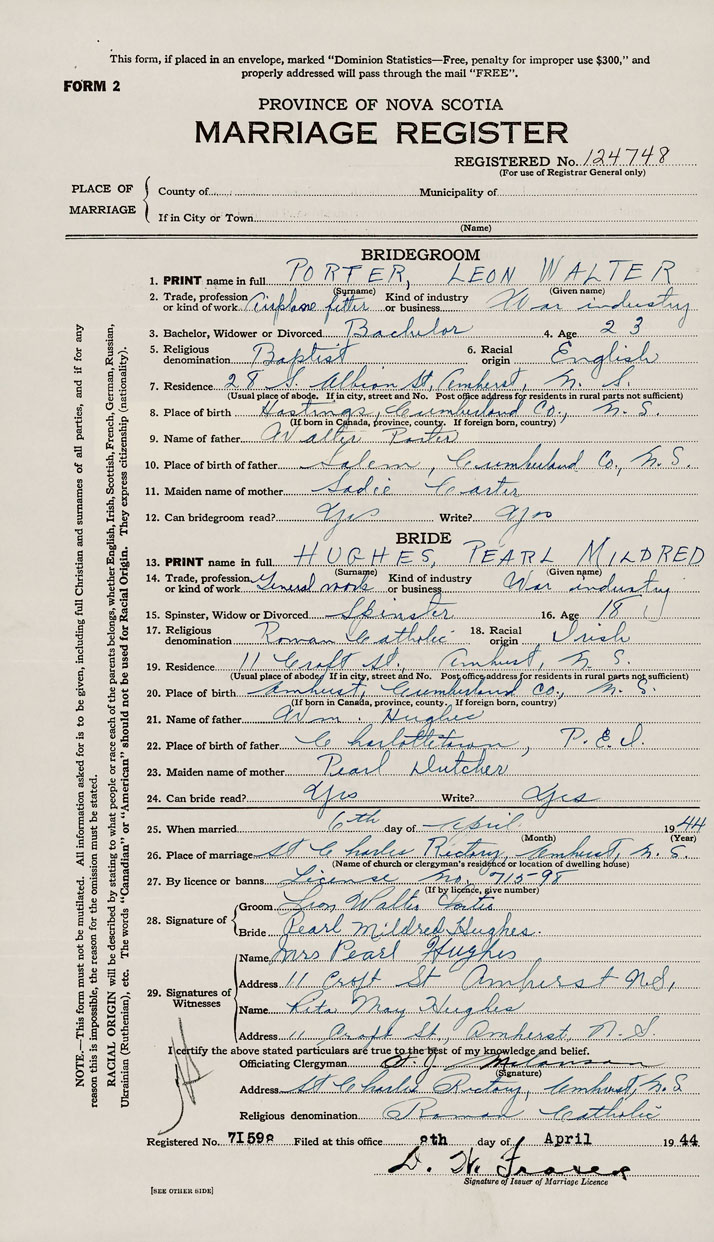 This form, if placed in an envelope, marked "Dominion Statistics—Free, penalty for improper use $300," and
properly addressed will pass through the mail "FREE".
FORM 2
PROVINCE OF NOVA SCOTIA
MARRIAGE REGISTER
REGISTERED No. 124748
(For use of Registrar General only)
PLACE OF MARRIAGE
County of Municipality of
If in City or Town
(Name)
BRIDEGROOM
1. PRINT name in full PORTER, LEON WALTER
(Surname) (Given name)
2. Trade, profession or kind of work Airplane fitter Kind of industry or business War industry
3. Bachelor, Widower or Divorced Bachelor 4. Age 23
5. Religious denomination Baptist 6. Racial origin English
7. Residence 28 S. Albion St, Amherst, N. S.
(Usual place of abode. If in city, street and No. Post office address for residents in rural parts not sufficient)
8. Place of birth Hastings, Cumberland Co., N. S.
(If born in Canada, province, county. If foreign born, country)
9. Name of father Walter Porter
10. Place of birth of father Salem, Cumberland Co, N. S.
11. Maiden name of mother Sadie Carter
12. Can bridegroom read? Yes Write? Yes
BRIDE
13. PRINT name in full HUGHES, PEARL MILDRED
(Surname) (Given name)
14. Trade, profession or kind of work General work Kind of industry or business War industry
15. Spinster, Widow or Divorced Spinster 16. Age 18
17. Religious denomination Roman Catholic 18. Racial origin Irish
19. Residence 11 Croft St., Amherst, N. S.
(Usual place of abode. If in city, street and No. Post office address for residents in rural parts not sufficient)
20. Place of birth Amherst, Cumberland Co., N. S.
(If born in Canada, province, county. If foreign born, country)
21. Name of father Wm. Hughes
22. Place of birth of father Charlottetown, P. E. I.
23. Maiden name of mother Pearl Dutcher
24. Can bride read? Yes Write? Yes
25. When married 6th day of April 1944
(Month) (Year)
26. Place of marriage St Charles Rectory, Amherst, N. S.
(Name of church or clergyman's residence or location of dwelling house)
27. By licence or banns License No. 715-98
(If by licence, give number)
28. Signature of
Groom Leon Walter Porter
Bride Pearl Mildred Hughes.
29. Signatures of Witnesses
Name Mrs Pearl Hughes
Address 11 Croft St Amherst N.S,
Name Rita May Hughes
Address 11 Croft St., Amherst, N. S.
I certify the above stated particulars are true to the best of my knowledge and belief.
Officiating Clergyman
(Signature)
Address St Charles Rectory, Amherst, N. S
Religious denomination Roman Catholic
Registered No. 71598 Filed at this office 8th day of April 1944
D. W. Fraser
Signature of Issuer of Marriage Licence
[SEE OTHER SIDE]
NOTE.—This form must not be mutilated. All information asked for is to be given, including full Christian and surnames of all parties, and if for any
reason this is impossible, the reason for the omission must be stated.
RACIAL ORIGIN will be described by stating to what people or race each of the parents belongs, whether English, Irish, Scottish, French, German, Russian,
Ukrainian (Ruthenian), etc. The words "Canadian" or "American" should not be used for Racial Origin. They express citizenship (nationality).